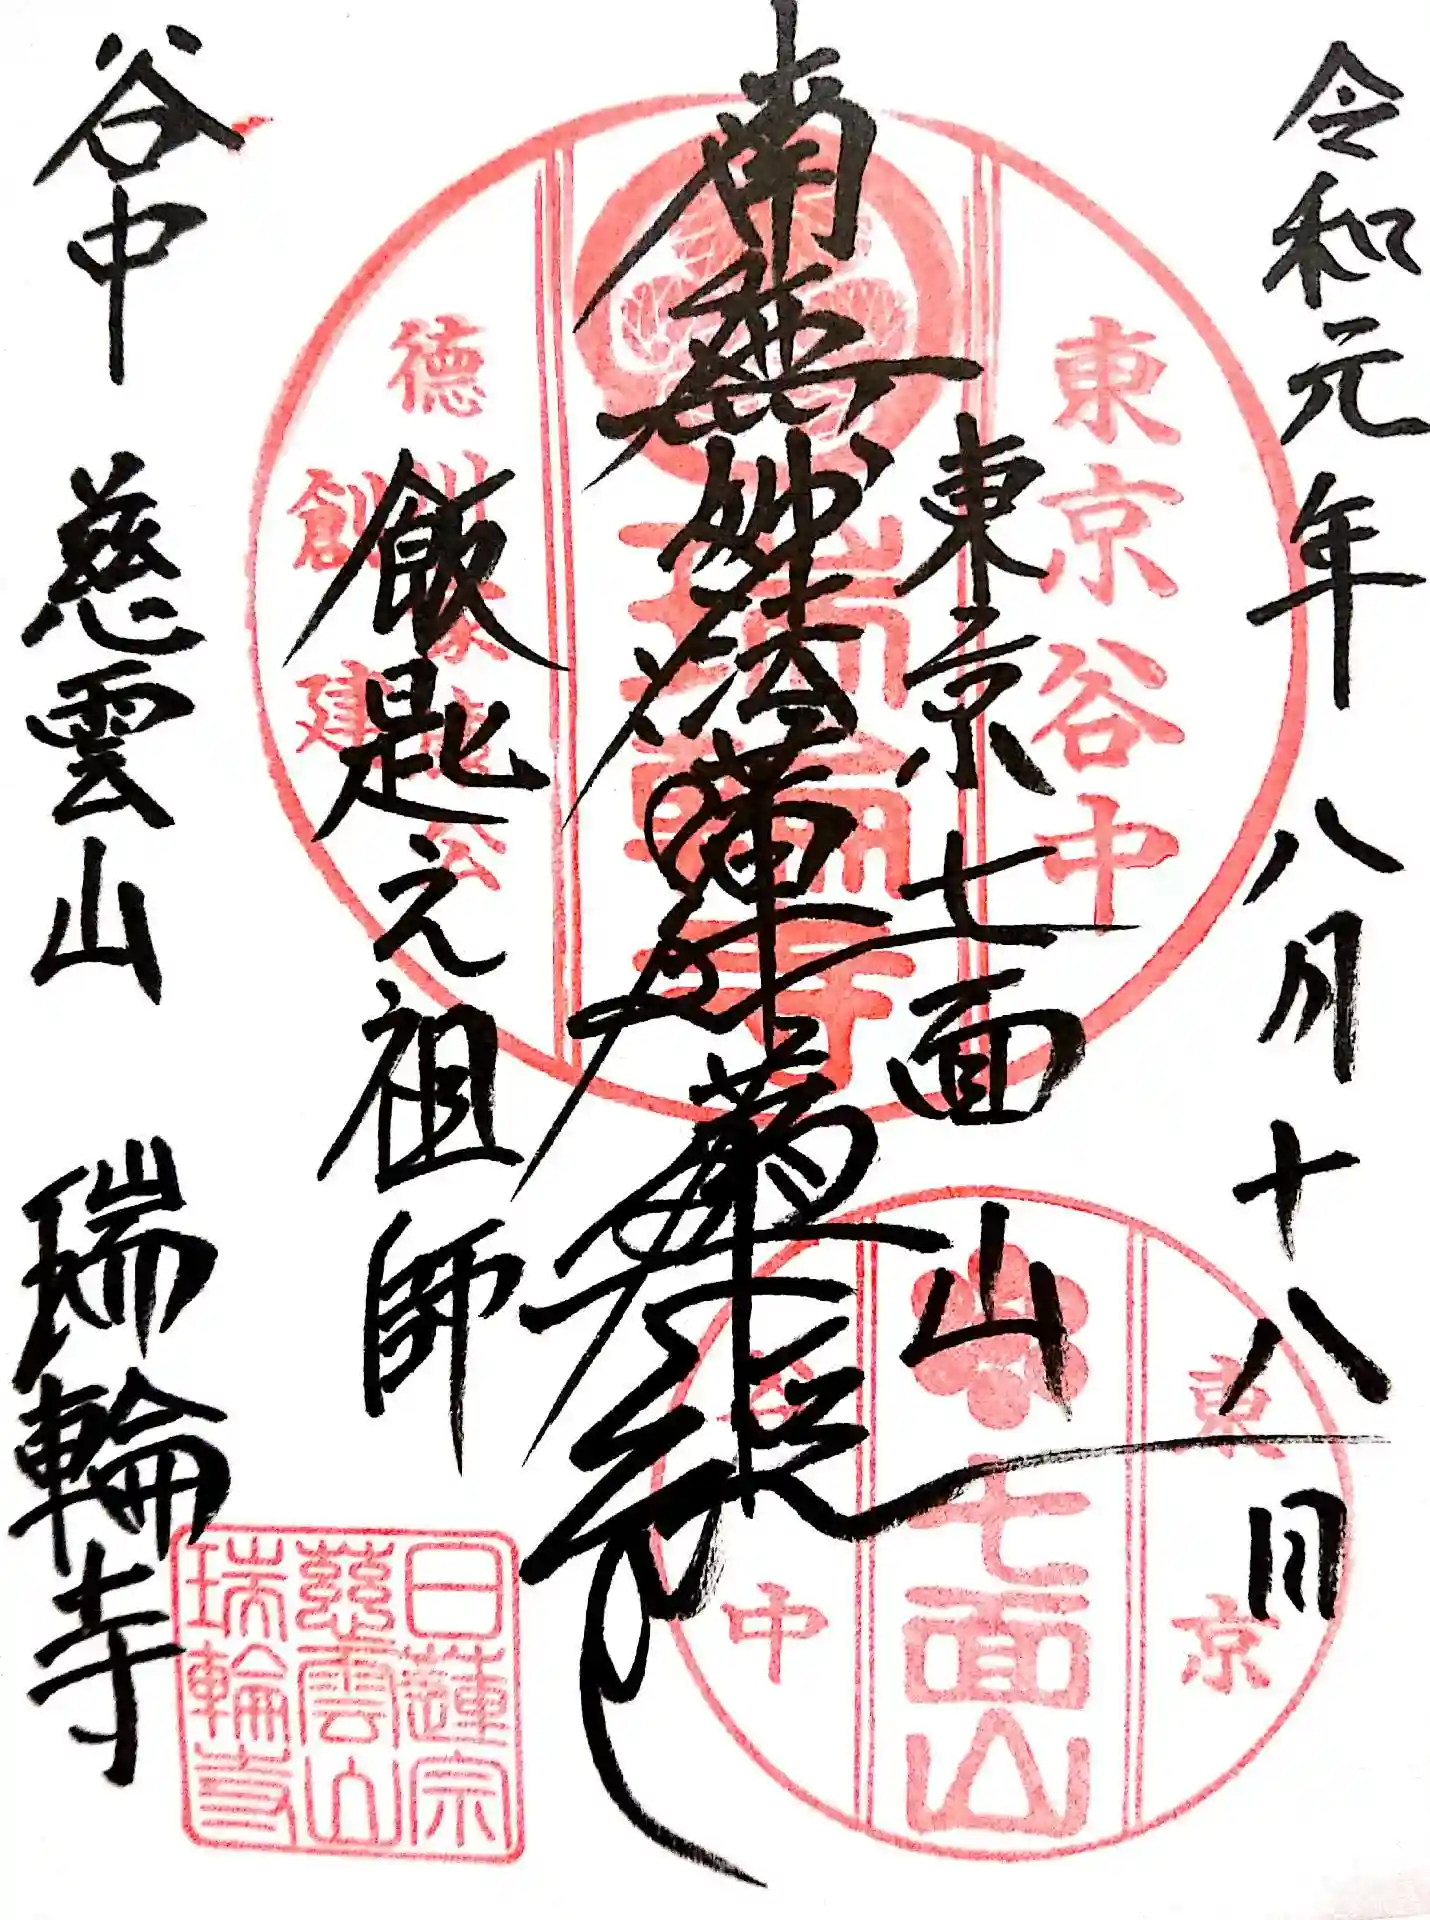 令和元年八月十八日
東京七面山
南無妙法蓮華経
飯匙之祖師
谷中 慈雲山 瑞輪寺
東京谷中
瑞輪寺
徳川家康公
創建
東京
七面山
谷中
日蓮宗
慈雲山
瑞輪寺